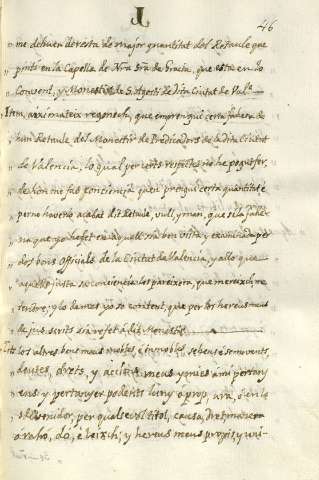 46
me dehuen de resta de major quantitat del Retaule que
pinti en la Capella de Nra Sra de Gracia, que esta en lo
Convent, y Monestir de S. Agosti de dita Ciutat de Vala.
Item, axi mateix regonech, que emprengui certa fahena de
hun Retaule del Monestir de Predicadors de la dita Ciutat
de Valencia, lo qual per certs respectes no he pogut fer,
de hon me fas conciencia, quen prengui certa quantitat e
per no haverlo acabat dit Retaule, vull, y man, que si la fahe-
na que yo he fet en aquell sia ben vista, y examinada per
dos bons officials de la Ciutat de Valencia, y allo que
aquells justa sa conciencia los pareixera, que mereixch me
tendre, y lo de mes yo so content, que per los hereus meus
de jus scrits sia refet á dit Monestir.
Tots los altres bens meus mobles, é inmobles, sehens é semovents,
deutes, drets, y accions meus, y mies á mi pertany-
ens y pertanyer podents luny o prop, ara, ó en lo
sdevenidor, per qualsevol titol, causa, dret manera
ó raho, do, é leixch; y hereus meus propis, y uni-